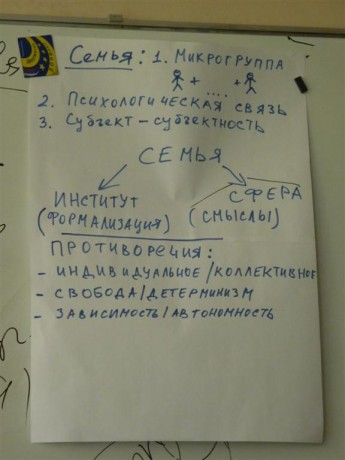 СЕМЬЯ: 1. МИКРОГРУППА
+ .... +
2. ПСИХОЛОГИЧЕСКАЯ СВЯЗЬ
3. СУБЪЕКТ – СУБЪЕКТНОСТЬ
СЕМЬЯ
ИНСТИТУТ СФЕРА
(ФОРМАЛИЗАЦИЯ) (СМЫСЛЫ)
ПРОТИВОРЕЧИЯ:
- ИНДИВИДУАЛЬНОЕ/КОЛЛЕКТИВНОЕ
- СВОБОДА/ДЕТЕРМИНИЗМ
- ЗАВИСИМОСТЬ/АВТОНОМНОСТЬ